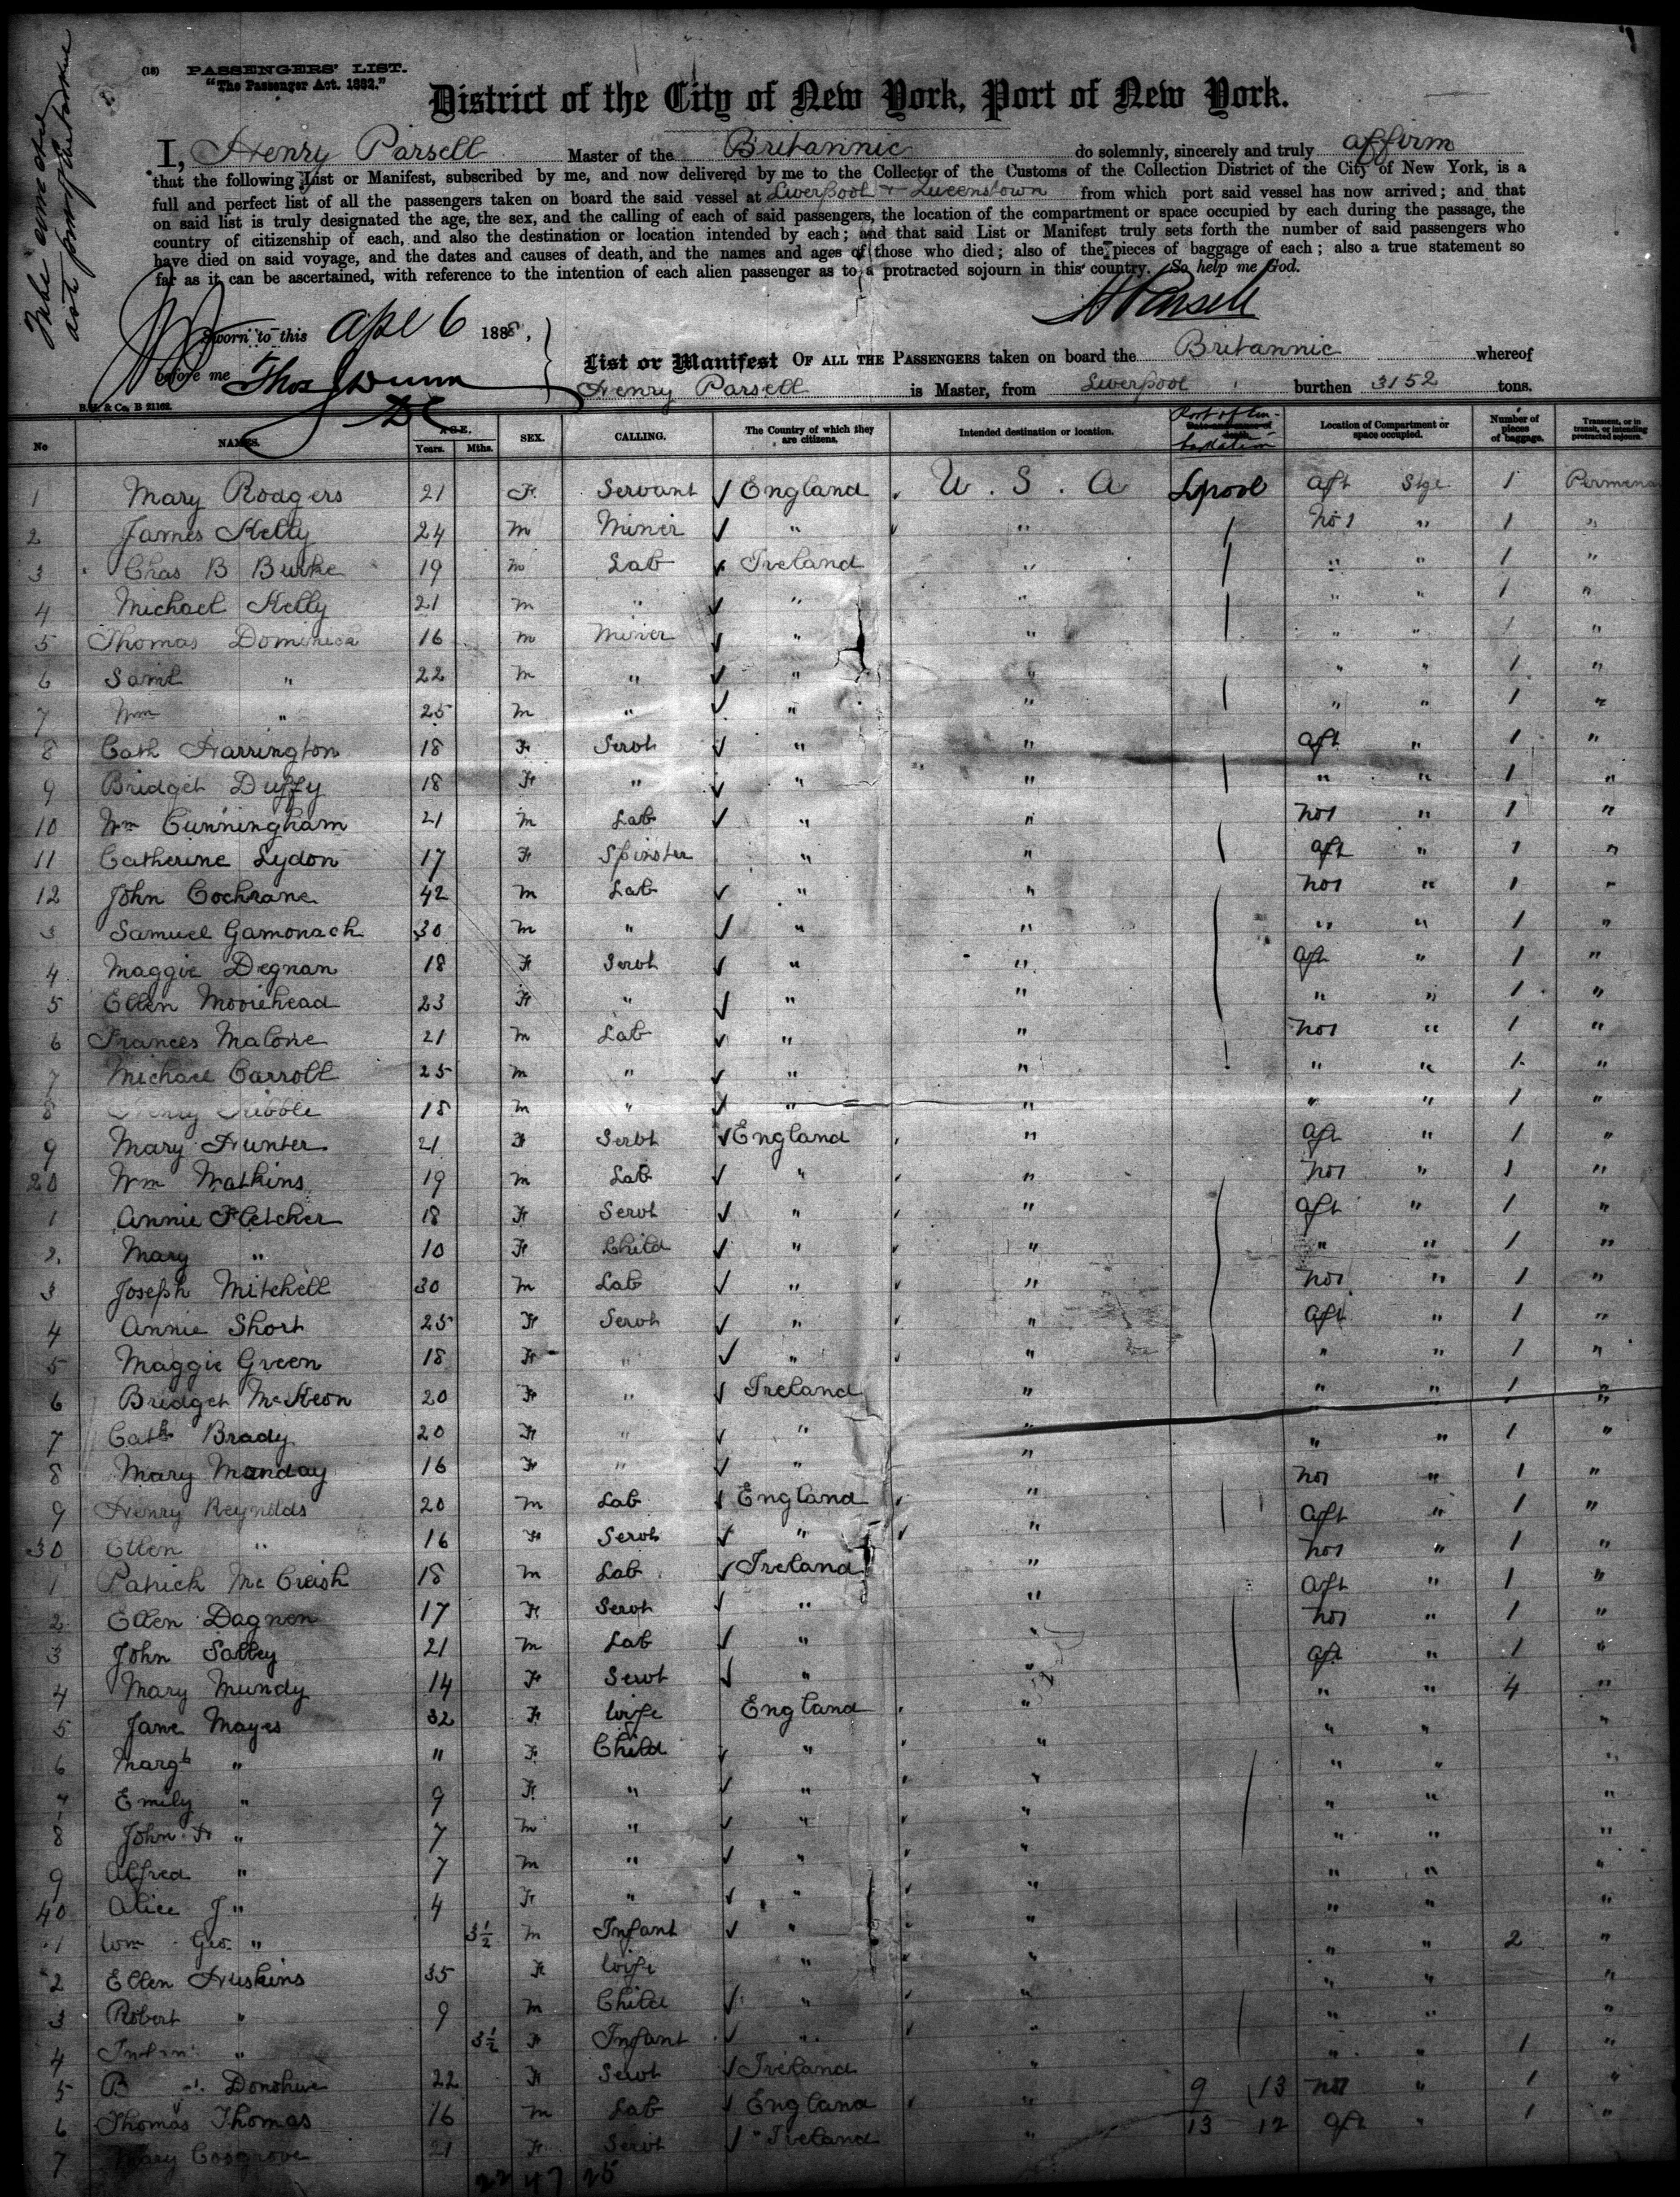 (18) PASSENGERS' LIST.
"The Passenger Act. 1882."
District of the City of New York, Port of New York.
I, Henry Parsell Master of the Britannic do solemnly, sincerely and truly affirm
that the following List or Manifest, subscribed by me, and now delivered by me to the Collector of the Customs of the Collection District of the City of New York, is a
full and perfect list of all the passengers taken on board the said vessel at Liverpool & Queenstown from which port said vessel has now arrived; and that
on said list is truly designated the age, the sex, and the calling of each of said passengers, the location of the compartment or space occupied by each during the passage, the
country of citizenship of each, and also the destination or location intended by each; and that said List or Manifest truly sets forth the number of said passengers who
have died on said voyage, and the dates and causes of death, and the names and ages of those who died; also of the pieces of baggage of each; also a true statement so
far as it can be ascertained, with reference to the intention of each alien passenger as to a protracted sojourn in this country. So help me God.
H Parsell
Sworn to this Apl 6 1888,
before me Thos Dunn
DC
List or Manifest OF ALL THE PASSENGERS taken on board the Britannic whereof
Henry Parsell is Master, from Liverpool burthen 3152 tons.
No NAMES. AGE. Years. Mths. SEX. CALLING. The Country of which they are citizens. Intended destination or location. Port of Em-barkation Location of Compartment or space occupied. Number of pieces of baggage. Transient, or in transit, or intending protracted sojourn.
1 Mary Rodgers 21 F Servant England U.S.A Lpool aft Stge 1 Permena
2 James Kelly 24 m Miner " " No 1 " 1 "
3 Chas B Burke 19 m Lab Ireland " " " 1 "
4 Michael Kelly 21 m " " " " " 1 "
5 Thomas Dominick 16 m Miner " " " " 1 "
6 Saml " 22 m " " " " " 1 "
7 Wm " 25 m " " " " " 1 "
8 Cath Harrington 18 F Servt " " aft " 1 "
9 Bridget Duffy 18 F " " " " " 1 "
10 Wm Cunningham 21 m Lab " " No1 " 1 "
11 Catherine Lydon 17 F Spinster " " aft " 1 "
12 John Cochrane 42 m Lab " " No1 " 1 "
3 Samuel Gamonach 30 m " " " " " 1 "
4 Maggie Degnan 18 F Servt " " aft " 1 "
5 Ellen Moorehead 23 F " " " " " 1 "
6 Frances Malone 21 m Lab " " No1 " 1 "
7 Michael Carroll 25 m " " " " " 1 "
8 18 m " " " " " 1 "
9 Mary Hunter 21 F Servt England " aft " 1 "
20 Wm Watkins 19 m Lab " " No1 " 1 "
1 Annie Fletcher 18 F Servt " " aft " 1 "
2 Mary " 10 F Child " " " " 1 "
3 Joseph Mitchell 30 m Lab " " No1 " 1 "
4 Annie Short 25 F Servt " " aft " 1 "
5 Maggie Green 18 F " " " " " 1 "
6 Bridget McKeon 20 F " Ireland " " " 1 "
7 Cath Brady 20 F " " " " " 1 "
8 Mary Monday 16 F " " " No1 " 1 "
9 Henry Reynolds 20 m Lab England " aft " 1 "
30 Ellen " 16 F Servt " " No1 " 1 "
1 Patrick Mc Creish 18 m Lab Ireland " aft " 1 "
2 Ellen Dagnen 17 F Servt " " No1 " 1 "
3 John Salley 21 m Lab " " aft " 1 "
4 Mary Mundy 14 F Servt " " " " 4 "
5 Jane Mayes 32 F Wife England " " " "
6 Margt " " F Child " " " " "
7 Emily " 9 F " " " " " "
8 John F " 7 m " " " " " "
9 Alfred " 7 m " " " " " "
40 Alice J " 4 F " " " " " "
1 Wm Geo. " 3½ m Infant " " " " 2 "
2 Ellen Huskins 35 F Wife " " " " "
3 Robert " 9 m Child " " " " "
4 " 3½ F Infant " " " " 1 "
5 B Donohue 22 F Servt Ireland " 9 13 No1 " 1 "
6 Thomas Thomas 16 m Lab England " 13 12 aft " 1 "
7 Mary Cosgrove 21 F Servt Ireland "
22 47 25